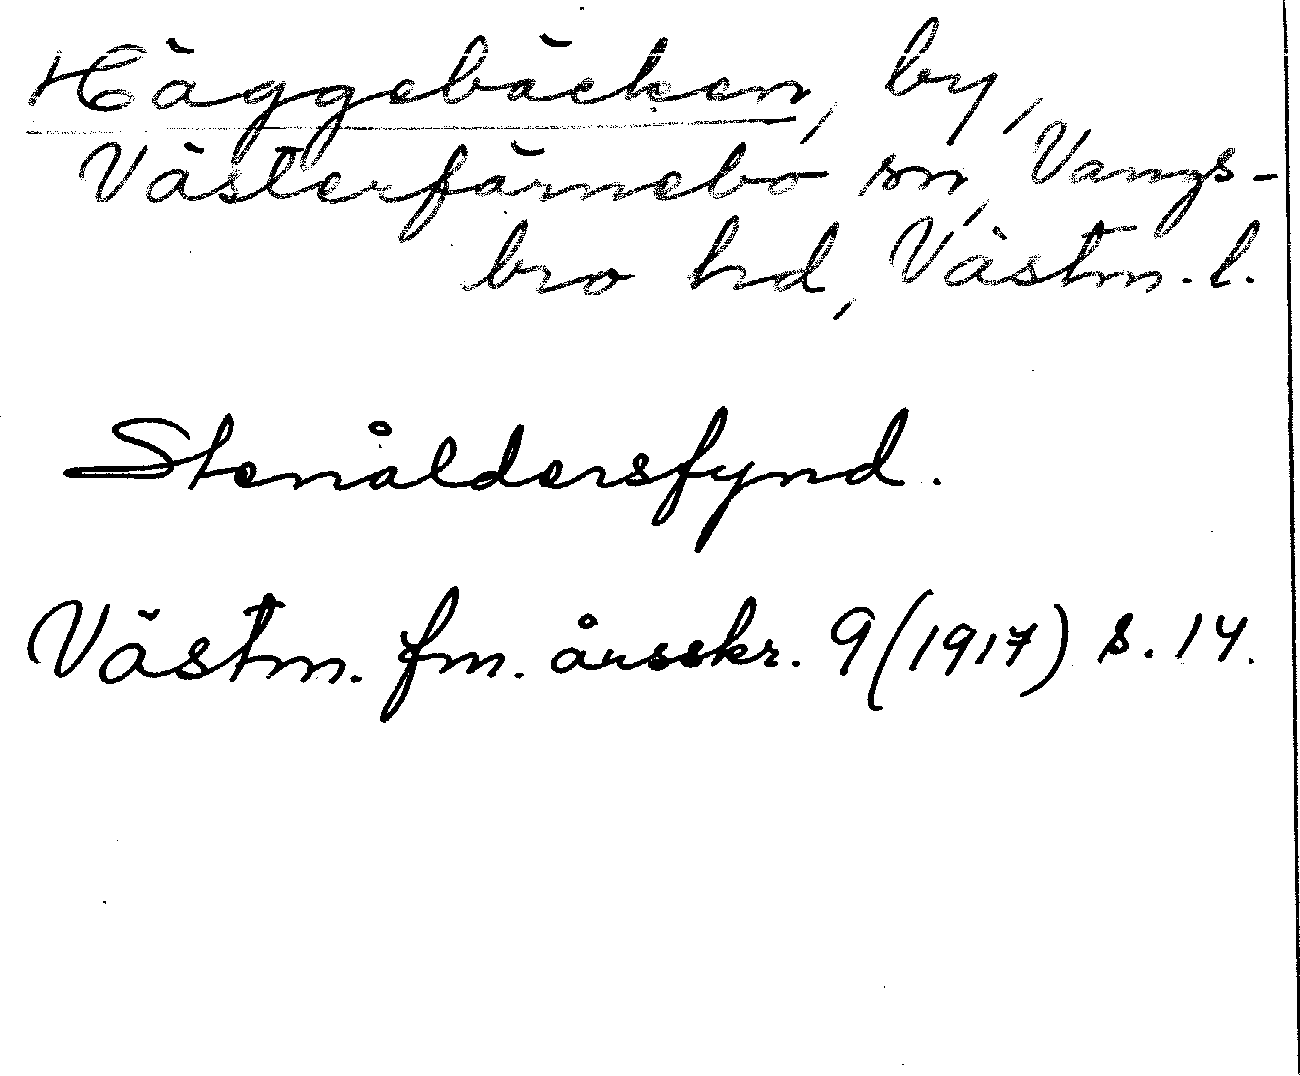 Häggebäcken, by,
Västerfärnebo sn, Vangs-
bro hd, Västm. l.
Stenåldersfynd.
Västm. fm. årsskr. 9 (1917) s. 14.